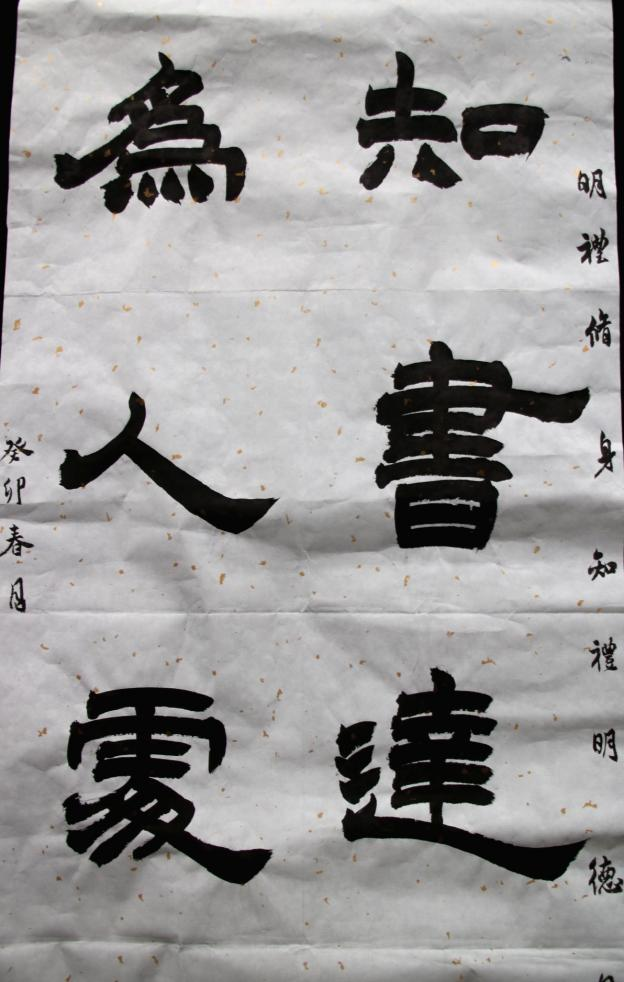 明禮脩身知禮明德
知書達
為人處
癸卯春月